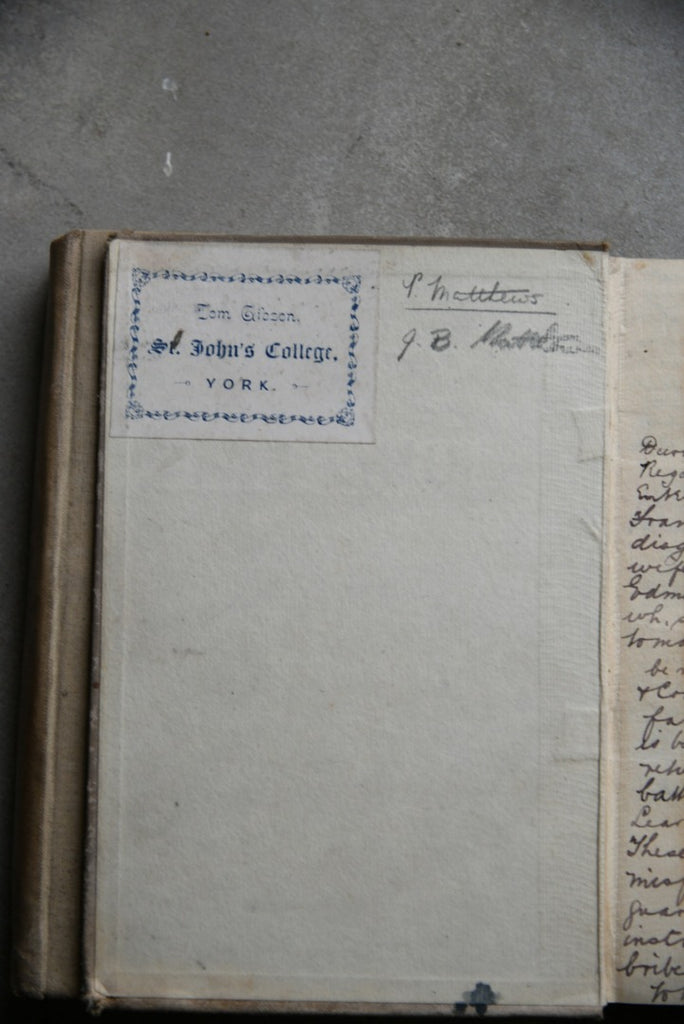 Tom Gibson.
St. John's College.
YORK.
P. Matthews
J. B. Matthews
Reg
Ente
Fran
disg
wife
Edm
wh. s
toma
be
+ Co
fa
is b
retu
batt
Lear
These
mis
guar
inst
bribe
to